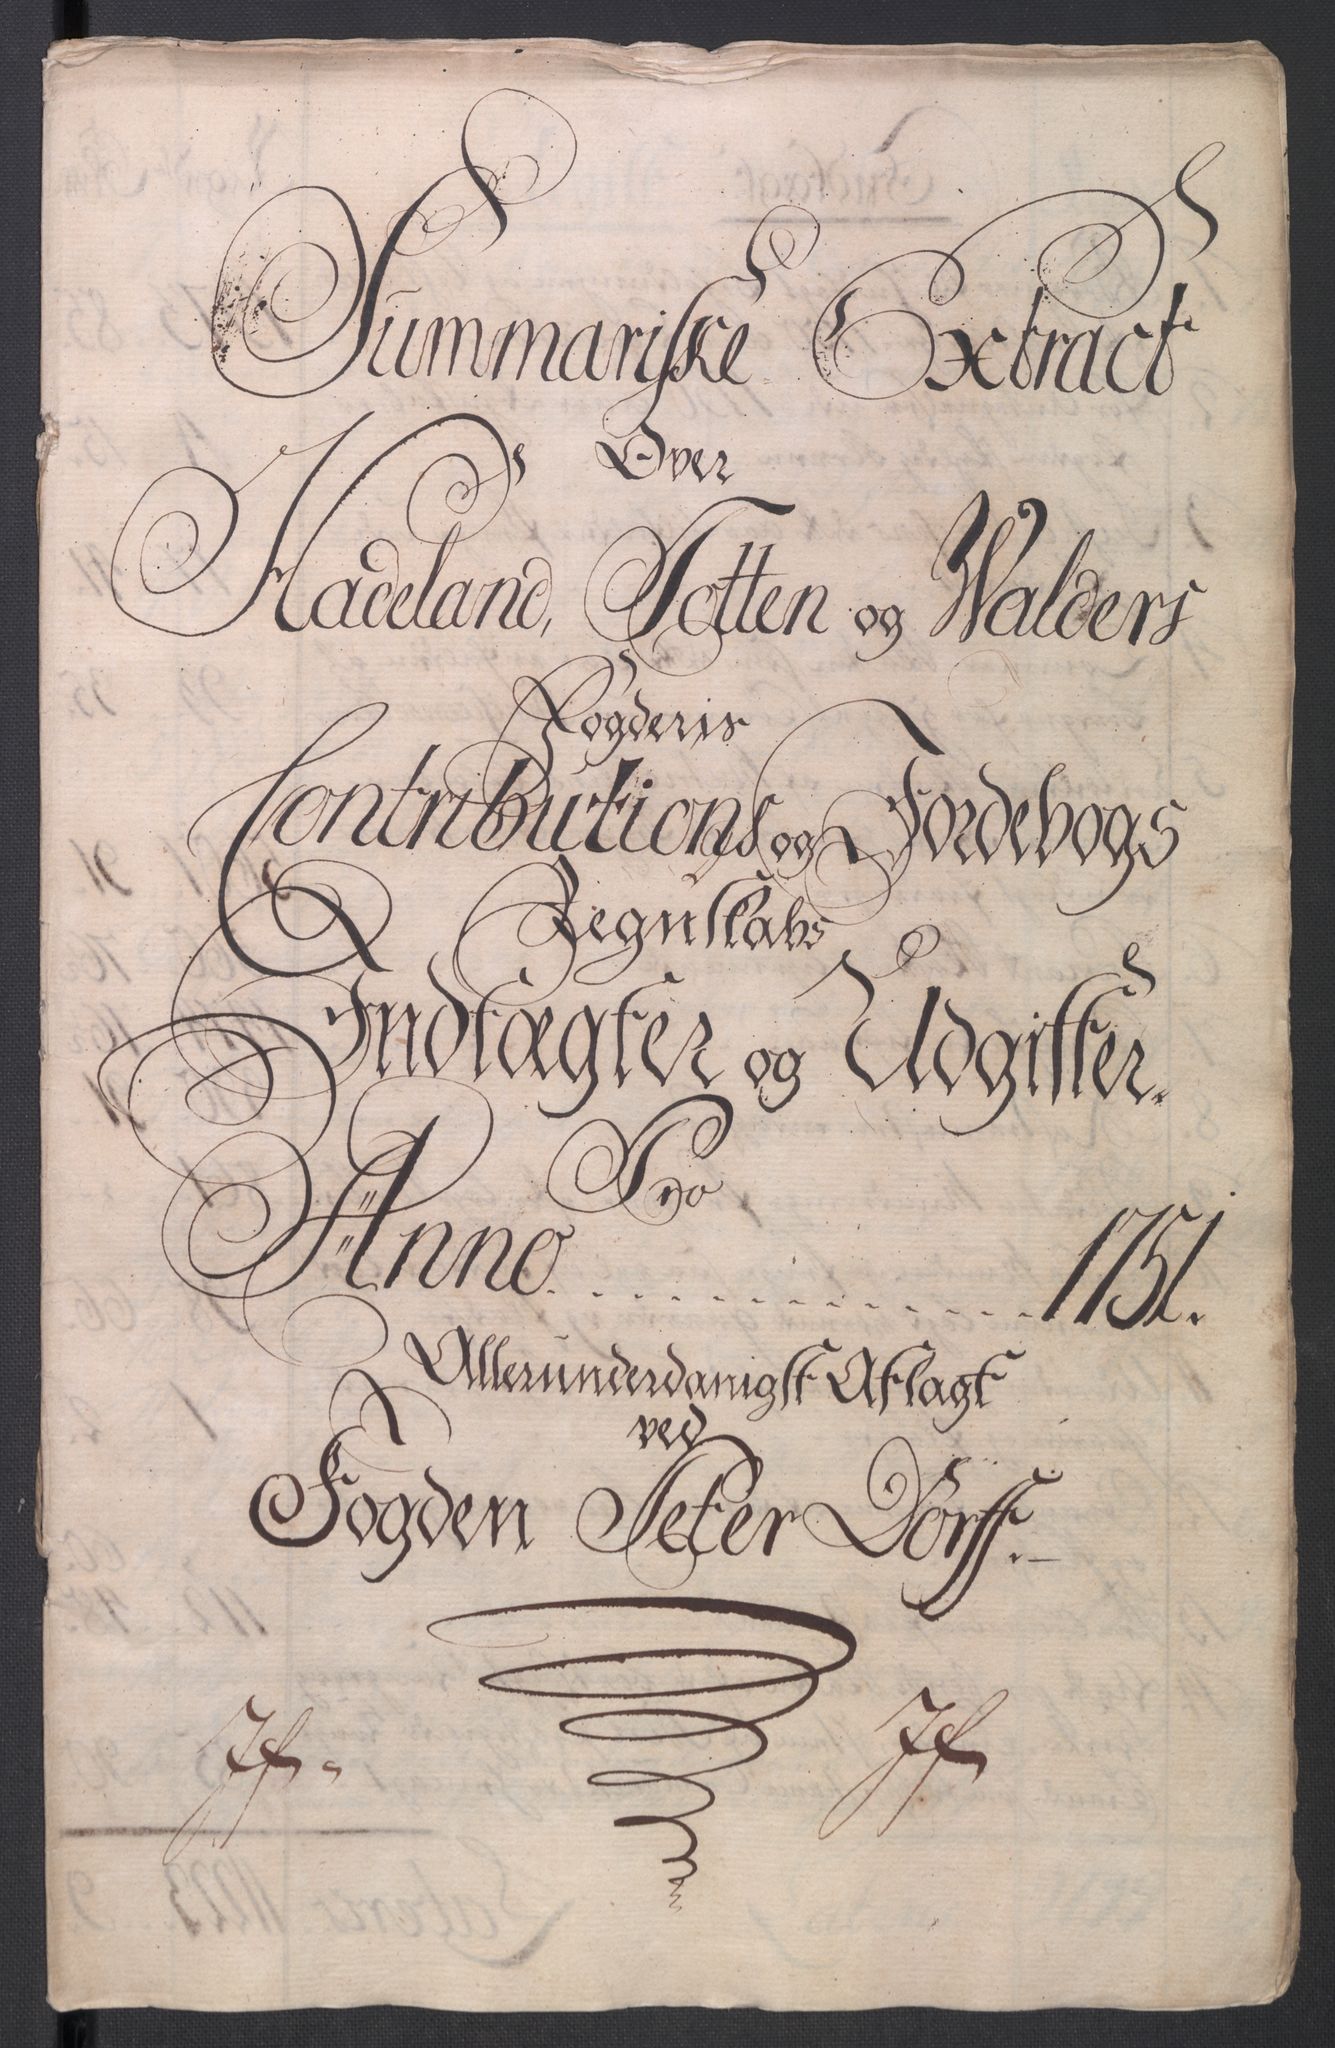 Summariske Extract
Over
Hadeland, Totten og Walders
Fogderis
Contributions og Jordebogs
Regnskabs
Indtægter og Udgifter.
Pro
Anno. 1751.
Allerunderdanigst Aflagt
ved
Fogden Peter Dorff.